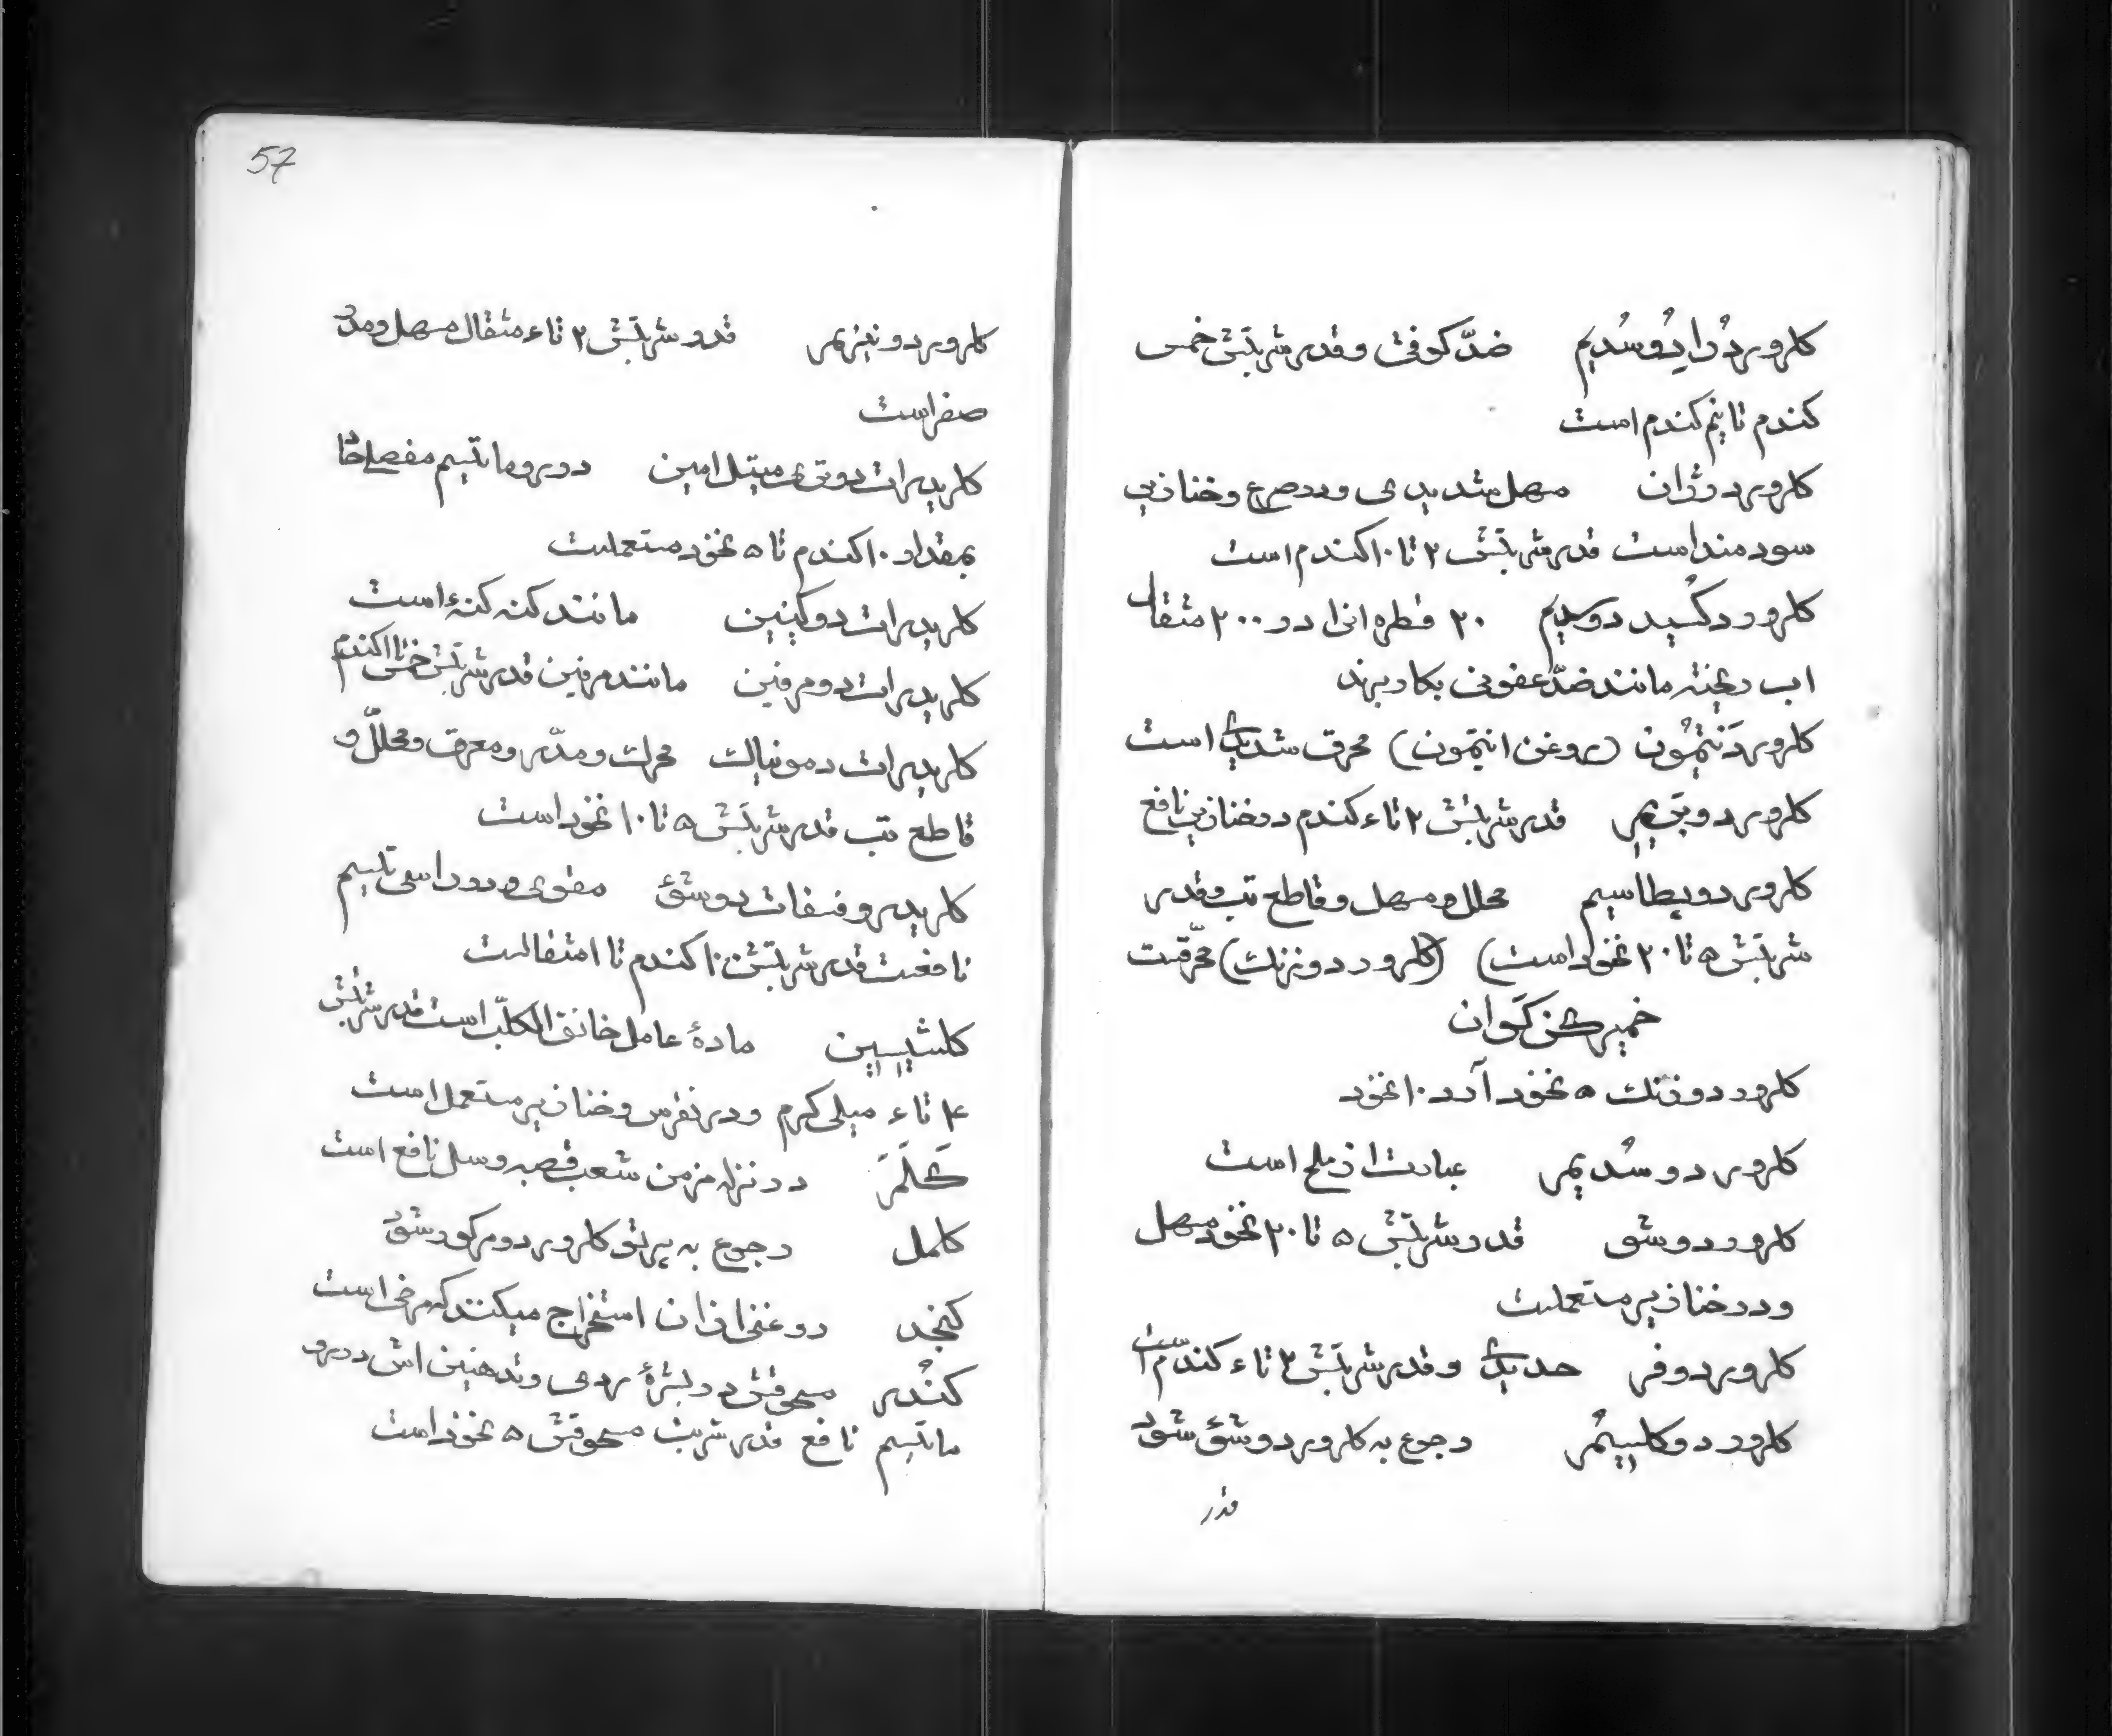 کلرور دُرایدُوسُدیم ضدّ کوفت و قدر شربتش خمس
کندم تا نیم کندم است
کلرور دوژان مسهل شدیدی و در صرع و خنازیر
سودمند است قدر شربتش ۲ تا ۱۰ کندم است
کلرور دکسید دوسدیم ۲۰ قطره انرا در ۲۰۰ مثقال
اب ریخته مانند ضدّ عفونی بکار برند
کلرور دَنتِمُون (روغن انتیمون) محرق شدیدی است
کلرور دو بَریم قدر شربتش ۲ تا ۴ کندم در خنازیر نافع
کلرور دو پطاسیم محلل و مسهل و قاطع تب و قدر
شربتش ۵ تا ۲۰ نخود است) (کلرور دو زنک) محرّقست
خمیر کن کوان
کلرور دوزنک ۵ نخود آرد ۱۰ نخود
کلرور دوسُدیم عبارت از ملح است
کلرور دوشو قدر شربتش ۵ تا ۲۰ نخود مسهل
و در خنازیر مستعملست
کلرور دوفر حدیدی و قدر شربتش ۲ تا ۴ کندم است
کلرور دو کلسیُم رجوع به کلرور دوشو شود
قدر
57
کلرور دو منیزیم قدر شربتش ۲ تا ۴ مثقال مسهل و مدر
صفراست
کلریدرات دوتری میتیل امین در روماتیسم مفصلی حاد
بمقدار ۱۰ کندم تا ۵ نخود مستعملست
کلریدرات دوکینین مانند کنه کنه است
کلریدرات دومرفین مانند مرفین قدر شربتش خمس تا ۱ کندم
کلریدرات دمونیاک محرک و مدّر و معرق و محلل و
قاطع تب قدر شربتش ۵ تا ۱۰ نخود است
کلریدروفسفات دوشو مقوی و در راشی تیسم
نافعست قدر شربتش ۱۰ کندم تا ۱ مثقالست
کلشیسین مادهٔ عامل خانق الکلب است قدر شربتش
۱ تا ۴ میلی کرم و در نقرس و خنازیر مستعمل است
کَلَمَ در نزله مزمن شعب قصبه و سل نافع است
کلمل رجوع به پرتو کلرور دومرکور شود
کنجد روغنی از ان استخراج میکنند که مرخی است
کُندر مسحوقش در بشرهٔ ردی و تدهنین اش در رو
ماتیسم نافع قدر شربت مسحوقش ۵ نخود است